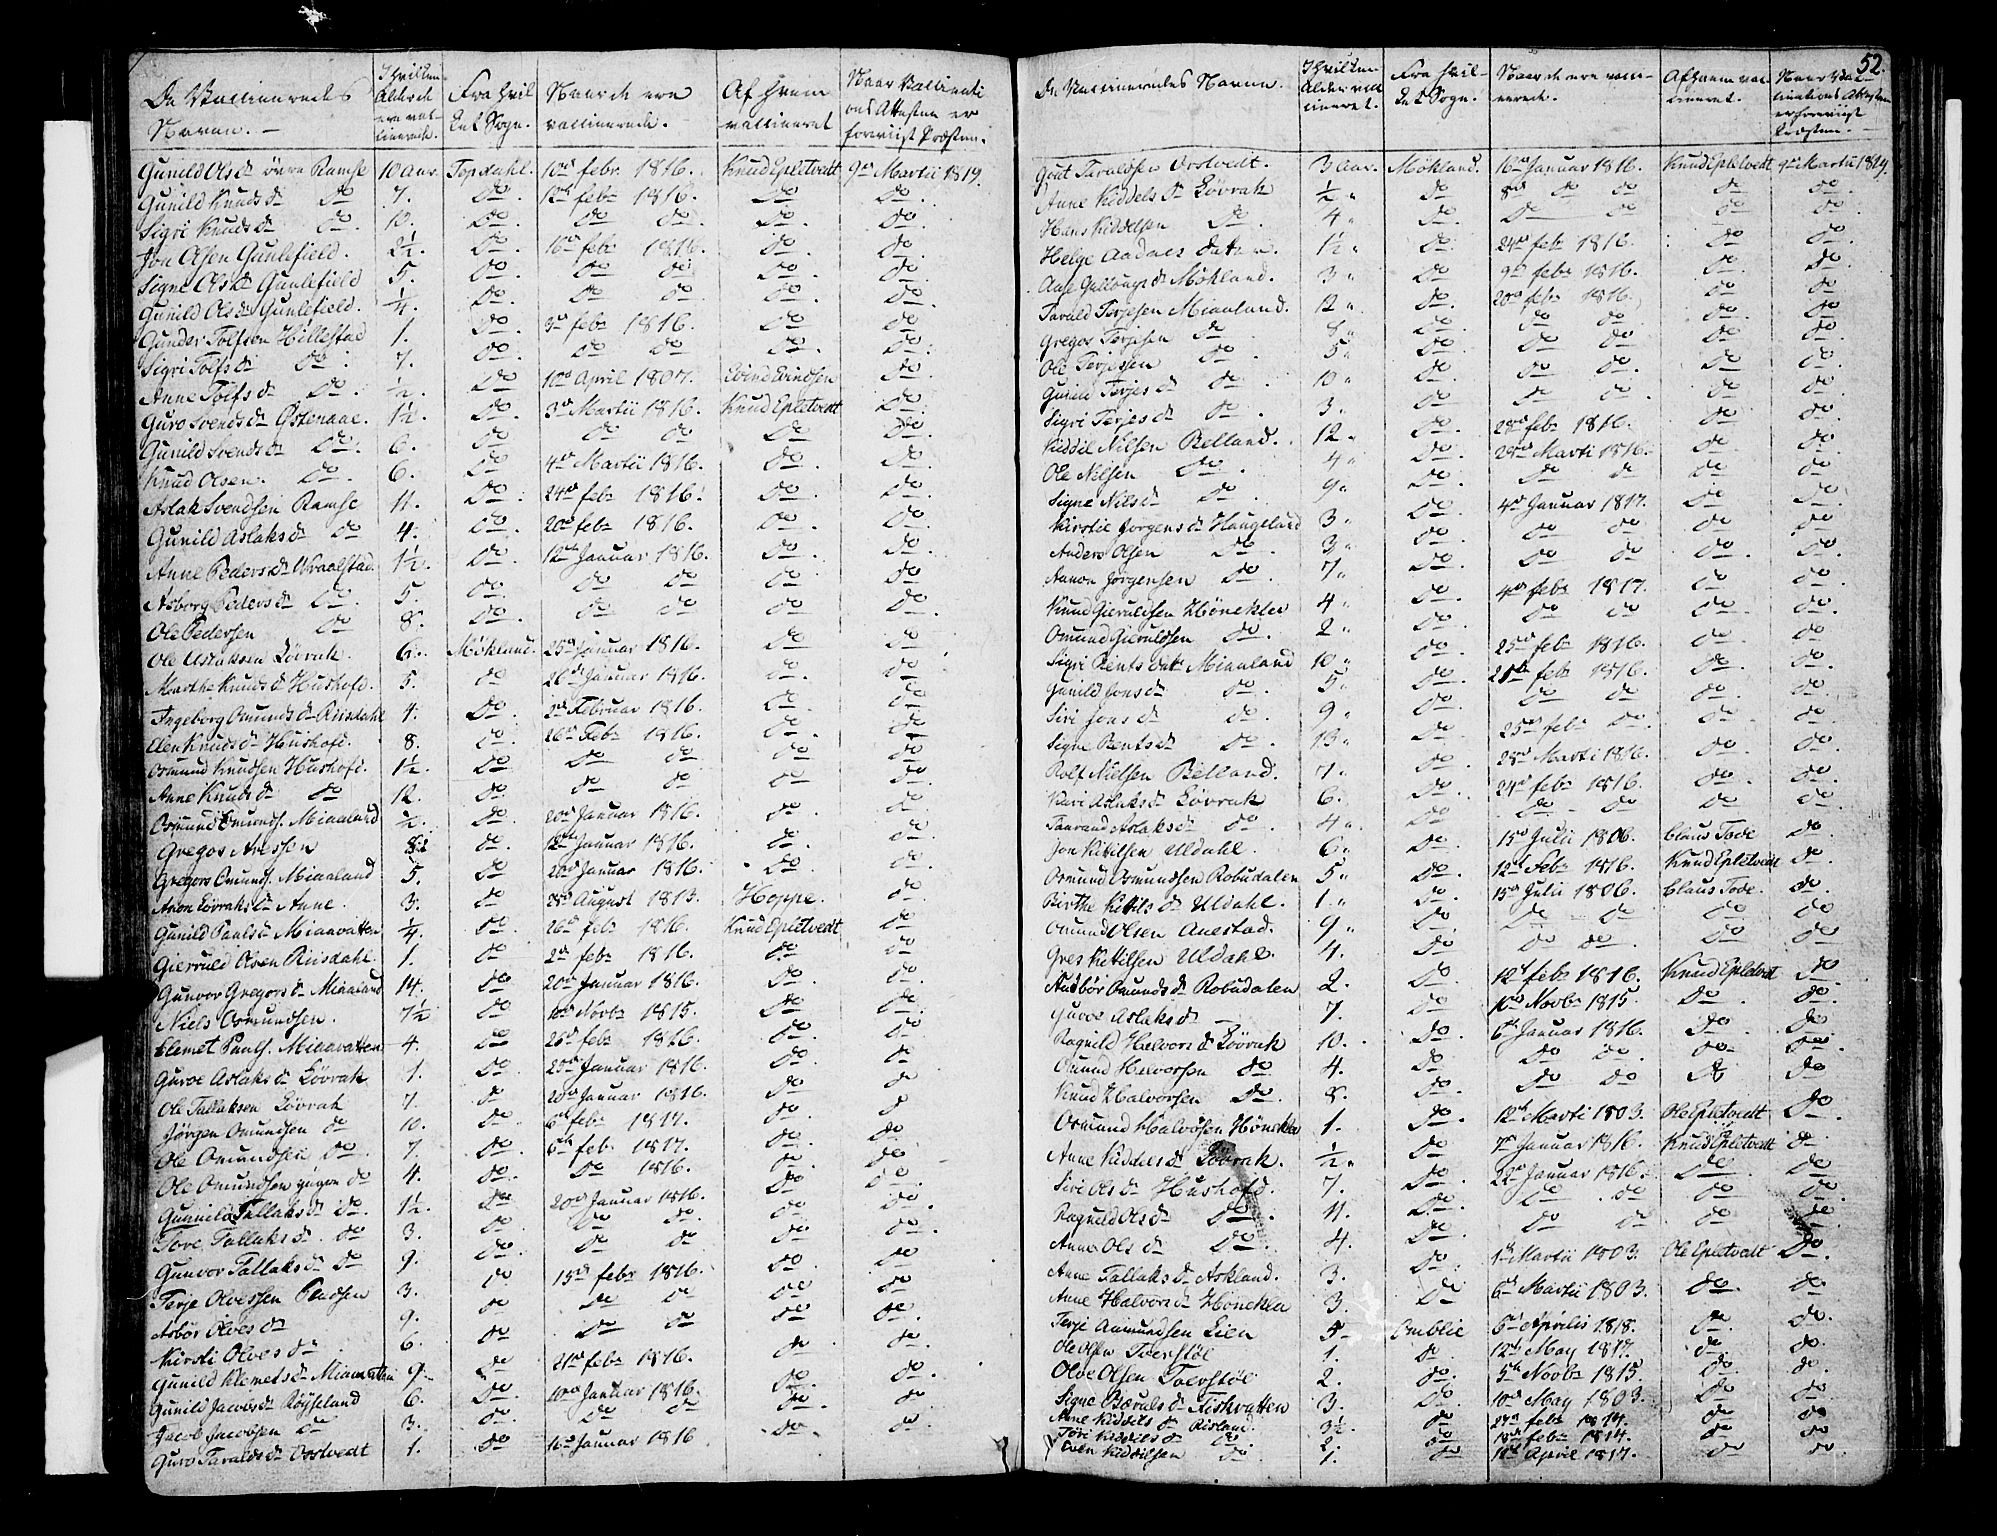 De Vaccineredes Navne. — | I hvilken Alder de ere vaccinerede. | Fra hvilket Sogn. | Naar de ere vaccinerede. — | Af hvem vaccineret | Naar Vaccinations Attesten er foreviist Præsten.
Gunild Olsd. øvre Ramse | 10 Aar. | Topdahl. | 10de febr. 1816. | Knud Epletvedt | 9de Martii 1819.
Gunild Knudsd. do | 7. | do. | 12te febr 1816. | do | do.
Sigri Knudsd. do. | 10. | do. | do do. | do. | do.
Jon Olsen Gunlefield. | 2½. | do. | 16de febr 1816. | do. | do.
Signe Olsd. Gunlefield | 5. | do. | do do | do. | do.
Gunild Olsd. Gunlefield. | ¼. | do. | do do. | do. | do.
Gunder Tolfsen Hillestad | 1. | do. | 3de febr 1816. | do | do
Sigri Tolfsd. do. | 7. | do. | do do | do. | do.
Anne Tolfsd. do. | ½. | do | 10de April 1807. | Evind Evindsen | do.
Guro Svendsd. Østenaae. | 1½. | do. | 3de Martii 1816. | Knud Epletvedt | do.
Gunild Svendsd. do. | 6. | do | do do | do | do.
Knud Olsen. do. | 6. | do | 4de Martii 1816. | do. | do.
Aslak Svendsen Ramse | 11. | do. | 24de febr 1816. | do. | do.
Gunild Aslaksd. do | 4. | do. | 20de febr 1816. | do. | do.
Anne Pedersd. Wraalstad. | 1½. | do. | 12te Januar 1816. | do. | do.
Asborg Pedersd. do. | 5. | do. | do do | do. | do.
Ole Pedersen do | 8. | do. | do do. | do | do.
Ole Aslaksen Løvrak. | 6. | Mökland. | 25de Januar 1816. | do | do.
Marthe Knudsd. Hushofd. | 5. | do | 26de Januar 1816. | do. | do.
Ingeborg Omundsd. Riisdahl | 4. | do. | 2de Februar 1816. | do. | do
Elen Knudsd. Hushofd. | 8. | do. | 26de Febr 1816. | do. | do
Osmund Knudsen Hushofd. | 1½. | do | do do | do | do
Anne Knudsd. do | 12. | do | do do | do | do.
Osmund Omunds. Miaaland | ½. | do. | 20de Januar 1816. | do. | do
Gregos Aresen | 8½ | do. | 12te Januar 1816. | do. | do.
Gregers Omunds. Miaaland | 5. | do | 20de Januar 1816. | do. | do.
Anne | 3. | do | 28de August 1813. | Hoppe. | do.
Gunild Paulsd. Miaavatten | ¼. | do. | 26de febr 1816. | Knud Epletvedt | do
Gieruld Olsen Riisdahl. | 1. | do. | 2de febr 1816. | do. | do
Gunvor Gregorsd. Miaaland | 14. | do | 20de Januar 1816. | do. | do.
Niels Osmundsen. | 7½ | do | Novbr 1815. | do | do.
Clemet Pauls. Miaavatten | 4. | do | 26de febr 1816. | do. | do
Guroe Aslaksd. Løvrak | 1. | do. | 25de Januar 1816. | do. | do
Ole Tallaksen Løvrak | 7. | do | 20de Januar 1816. | do | do
Jörgen Omundsen do | 10. | do. | 6te febr. 1817. | do. | do
Ole Omundsen do. | 7. | do. | 6te febr. 1817. | do. | do
Ole Omundsen yngere do | 4. | do. | do 1816. | do. | do.
Gunnild Tallaksd. do. | 1½. | do | 20de Januar 1816. | do | do.
Tore Tallaksd. do | 3. | do | do do. | do | do.
Gunvor Tallaksd. do | 9. | do. | do do | do. | do.
Terje Olvessen | 3. | do | 15de febr 1816. | do. | do
Asbør Olvesd. | 9. | do | do do | do | do
Kirsti Olvesd. do | 6. | do | do do | do | do.
Gunild Klemetsd. Miaavatten | 9. | do | 21de febr 1816. | do | do.
Gunild Jacobsd. Röyseland | 6. | do. | 10de Januar 1816. | do. | do.
Jacob Jacobsen do | 3. | do. | do do do | do. | do.
Guro Taraldsd. Ovstvedt | 1. | do | 16de Januar 1816 | do. | do.
52.
De Vaccineredes Navne. | I hvilken Alder vaccineret. | Fra hvilket Sogn. | Naar de ere vaccinerede. | Af hvem vaccineret. | Naar Vaccinations Attesten er foreviist Præsten. —
Gout Taraldsen Ovstvedt. | 3 Aar. | Mökland. | 16de Januar 1816. | Knud Epletvedt | 9de Martii 1819.
Anne Kiddelsd. Løvrak | ½ " | do | 8de do do | do | do.
Hans Kiddelsen do. | 4 " | do. | do do | do | do.
Helge Aadnes Datter. | 1½ " | do. | 24de febr 1816. | do | do.
Aase Gullougsd. Mökland. | 3 " | do | 9de febr 1816. | do. | do.
Tarald Terjesen Miaaland. | 12 " | do. | 20de febr 1816. | do | do
Gregos Terjesen do | 8 " | do. | do do | do. | do.
Ole Terjesen do. | 5 " | do. | do do | do | do.
Gunild Terjesd. do. | 10 " | do | do do. | do | do.
Sigri Terjesd. do. | 3 " | do. | do do. | do | do.
Kiddil Nilsen Belland. | 12 " | do. | 28de febr 1816. | do. | do.
Ole Nilsen do. | 4 " | do. | 28de Marti 1816. | do. | do.
Signe Nilsd. do. | 9 " | do. | do do | do | do.
Kirstie Jorgensd. Haugeland | 3 " | do. | 4de Januar 1817. | do | do.
Anders Olsen do. | 3 " | do. | do do | do | do.
Aanon Jörgensen do. | 7 " | do. | do do | do. | do.
Knud Gieruldsen Hönekler | 4 " | do. | 4de febr 1817. | do. | do.
Omund Gieruldsen do. | 2 " | do. | do do | do | do.
Sigri Rents datt. Miaaland | 10 " | do. | 25de febr 1816. | do. | do.
Gunild Jonsd. do. | 5 " | do. | 21de febr 1816. | do. | do.
Siri Jonsd. do. | 9 " | do. | do do | do. | do.
Signe Rentsd. do. | 13 " | do | 25de febr do. | do. | do.
Rolf Nielsen Belland. | 7 " | do. | 28de Marti 1816. | do. | do.
Kari Aslaksd. Løvrak | 6. | do. | 24de febr 1816. | do | do.
Taarand Aslaksd. do. | 4 " | do | do do | do | do.
Jon Kittilsen Uldahl. | 6 " | do. | 15de Julii 1806. | Claus Tode | do.
Osmund Osmundsen Robudalen | 5 " | do. | 12te Febr 1816. | Knud Epletvedt | do.
Birthe Kittilsd. Uldahl. | 1. " | do. | 15de Julii 1806. | Claus Tode. | do.
Omund Olsen Auestad. | 9 " | do | do do | do | do.
Gres Kittilsen Uldahl. | 4. | do | do do | do | do
Audbör Omundsd. Robudalen | 2. | do | 12te febr 1816. | Knud Epletvedt | do
Guroe Aslaksd. — | 7. | do | 10de Novbr 1815. | do. | do.
Ragnild Halvorsd. Løvrak | 10. | do. | 6te Januar 1816. | do. | do.
Omund Halvorsen do. | 4. | do | do do. | do | do.
Knud Halvorsen do. | 8. | do. | do do | do | do
Osmund Halvorsen Hönekler | 1. | do. | 12te Marti 1803. | Ole Epletvedt | do.
Anne Kiddelsd. Løvrak. | ½ " | do | 7de Januar 1816. | Knud Epletvedt | do
Siri Olsd. Hushofd. | 7. | do. | 22de Januar 1816. | do | do
Ragnild Olsd. do. | 11. | do. | do do | do | do
Anne Olsd. do. | 4. | do. | do do | do | do.
Anne Tallaksd. Askland. | 3. | do. | 1te Martii 1803. | Ole Epletvedt | do.
Anne Halvorsd. Hönekler | 3. | do | 6te Martii 1803. | do. | do.
Terje Aanundsen Lien | 5 | Omblie | 6te Aprilis 1818. | do. | do.
Ole Olsen Toverstöl | 1. | do. | 12te May 1817. | do | do.
Olve Olsen Toverstöl | 2. | do. | 5te Novbr 1815. | do | do.
Signe Bærulsd. Fiskvatten | 3. | do. | 10de May 1803. | do | do
Anne Kiddilsd. Risland. | 3½. | do | 24de febr 1814. | do | do
Töri Kiddilsd. do. | 2. | do | 18de febr 1814. | do. | do.
Even Kiddilsen do | 1. | do | 12te April 1817. | do | do.